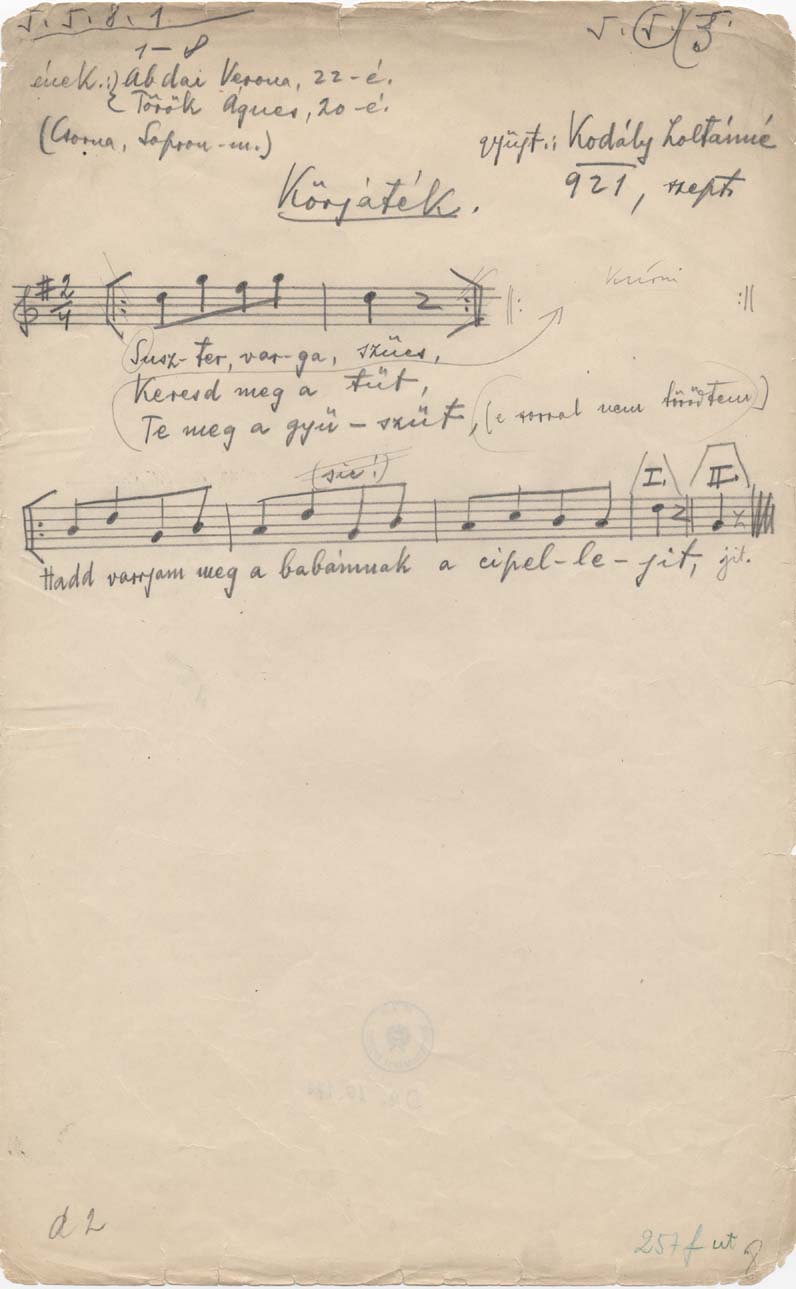 5. 5. 8. 1.
5. 5. 3.
1–8
ének.: Abdai Verona, 22-é.
Török Ágnes, 20-é.
(Csorna, Sopron-m.)
gyűjt.: Kodály Zoltánné
921, szept.
Körjáték.
2
4
Susz-ter, var-ga, szücs,
Keresd meg a tűt,
Te meg a gyű-szűt, (e sorral nem törődtem)
(sic!)
I. II.
Hadd varrjam meg a babámnak a cipel-le-jit, jit.
d 2
257 f